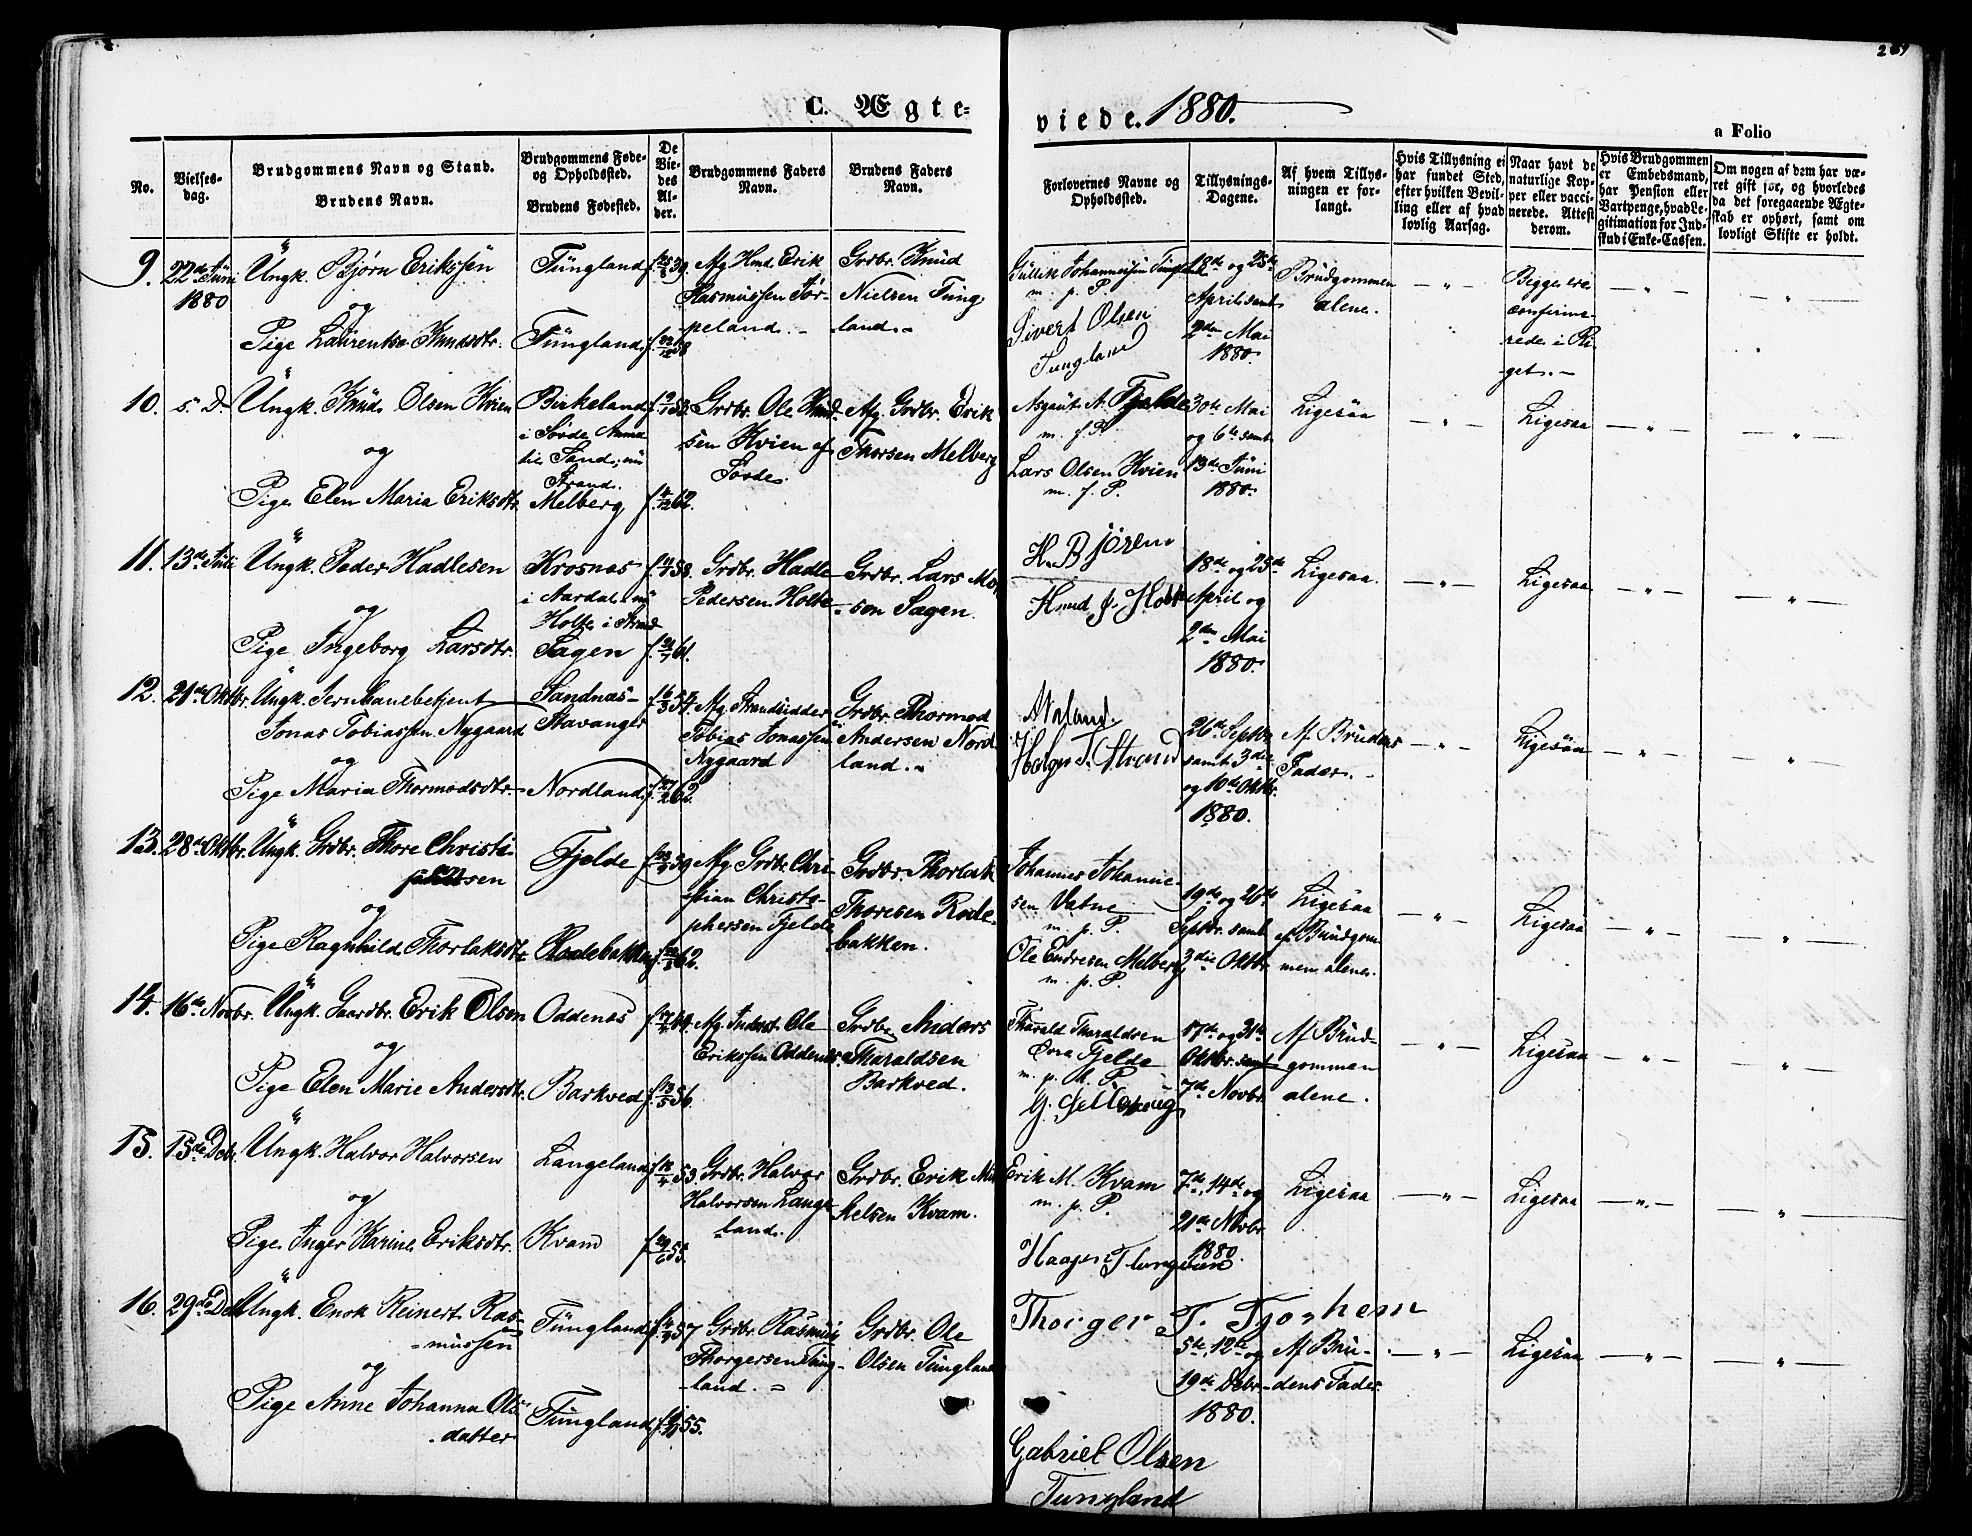 C. Ægte-
viede. 1880.
a Folio
No.
Vielses-
dag.
Brudgommens Navn og Stand.
Brudens Navn.
Brudgommens Føde-
og Opholdssted.
Brudens Fødested.
De
Vie-
des
Al-
der.
Brudgommens Faders
Navn.
Brudens Faders
Navn.
Forlovernes Navne og
Opholdssted.
Tillysnings-
Dagene.
Af hvem Tillys-
ningen er for-
langt.
Hvis Tillysning ei
har fundet Sted,
efter hvilken Bevil-
ling eller af hvad
lovlig Aarsag.
Naar havt de
naturlige Kop-
per eller vacci-
nerede. Attest
derom.
Hvis Brudgommen
er Embedsmand,
har Pension eller
Vartpenge, hvad Le-
gitimation for Ind-
skud i Enke-Cassen.
Om nogen af dem har væ-
ret gift før, og hvorledes
da det foregaaende Ægte-
skab er ophørt, samt om
lovligt Skifte er holdt.
9. 22de Juni
1880
Ungk. Bjørn Erikssen
og
Pige Laurentse Knudsdtr.
Tungland
Tungland
39.
58
Afg. Hmd. Erik
Rasmussen Tør-
peland.
Grdbr. Knud
Nielsen Tung-
land.
Gullik Johannessen Tungland
m. p. P.
Sivert Olsen
Tungland
18de og 25de
April samt
2den Mai
1880.
Brudgommen
alene.
Begge ere
confirme-
rede i Ri
get.
10. s. D.
Ungk. Knud Olsen Kvien
og
Pige Elen Maria Eriksdtr.
Birkeland
i Søvde
Sand, nu
Strand.
Melberg
53.
62.
Grdbr. Ole Knud-
sen Kvien af
Søvde.
Afg. Grdbr. Erik
Thorsen Melberg
Asgaut A. Fjelde
Lars Olsen Kvien
m. f. P.
30te Mai
og 6te samt
13de Juni
1880.
Ligesaa
Ligesaa
11. 13de Juli
Ungk. Peder Hadlesen
og
Pige Ingeborg Larsdtr.
Krosnæs
i Aardal, nu
Holte i Strand
Sagen
58.
61.
Grdbr. Hadle
Pedersen Holte
Grdbr. Lars
Sagen.
H. Bjøren
Knud
18de og 25de
April og
2den Mai
1880.
Ligesaa.
Ligesaa
12. 21de Oktbr.
Ungk. Jernbanebetjent
Jonas Tobiassen Nygaard
og
Pige Maria Thormodsdtr.
Sandnæs-
Stavanger
Nordland
54.
62.
Afg. Strandsidder
Tobias Jonassen
Nygaard
Grdbr. Thormod
Andersen Nord
land.
Holger T. Strand
26de Septbr.
samt 3die
og 10de Oktbr.
1880.
Af Brudens
Fader.
Ligesaa
13. 28de Oktbr.
Ungk. Grdbr. Thore Christi-
sen
og
Pige Ragnhild Thorlaksdtr.
Fjelde
Rodebakken
39
62.
Afg. Grdbr. Chri-
stian Christo-
phersen Fjelde
Grdbr. Thorlak
Thoresen Rode-
bakken.
Johannes Johanne-
sen Vatne
m. p. P.
Ole Endresen Melberg
m. p. P.
19de og 26de
Septbr. samt
3die Oktbr.
Ligesaa
af Brudgom-
men alene.
Ligesaa
14. 16de Novbr.
Ungk. Gaardbr. Erik Olsen
og
Pige Elen Marie Andersdtr.
Oddenæs
Barkved
56.
Ole
Erikssen Oddenæs
Grdbr. Anders
Tharaldsen
Barkved.
Tharald Tharaldsen
Øvra Fjelde
m. p. P.
17de og 31te
Oktbr. samt
7de Novbr.
Af Brud-
gommen
alene.
Ligesaa
15. 15de Debr.
Ungk. Halvor Halvorsen
og
Pige Inger Karine Eriksdtr.
Langeland
Kvam
53
55.
Grdbr. Halvor
Halvorsen Lange-
land.
Grdbr. Erik Mik
kelsen Kvam.
Erik M. Kvam
m. p. P.
7de, 14de og
21de Novbr.
1880
Ligesaa
Ligesaa
16. 29de Debr.
Ungk. Enok Reinert Ras-
mussen
og
Pige Anne Johanna Ols-
datter
Tungland
Tungland
57
55.
Grdbr. Rasmus
Thorgersen Tung-
land.
Grdbr. Ole
Olsen Tungland
Thorger T. Tjørhem
Gabriel Olsen
Tungland
5te, 12te og
19de Debr.
1880.
Af Bru-
dens Fader
Ligesaa